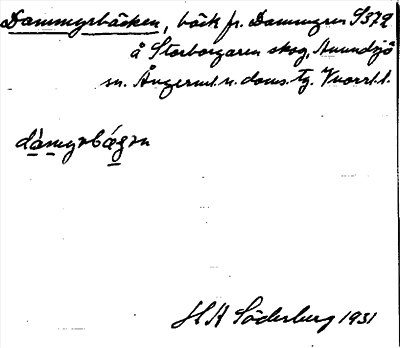 Dammyrbäcken, bäck fr. Dammyren S372
å Storborgaren skog, Anundsjö
sn. Ångerml. n. doms. tg. Vnorrl. l.
dàmyrbágan
H A Söderberg 1931